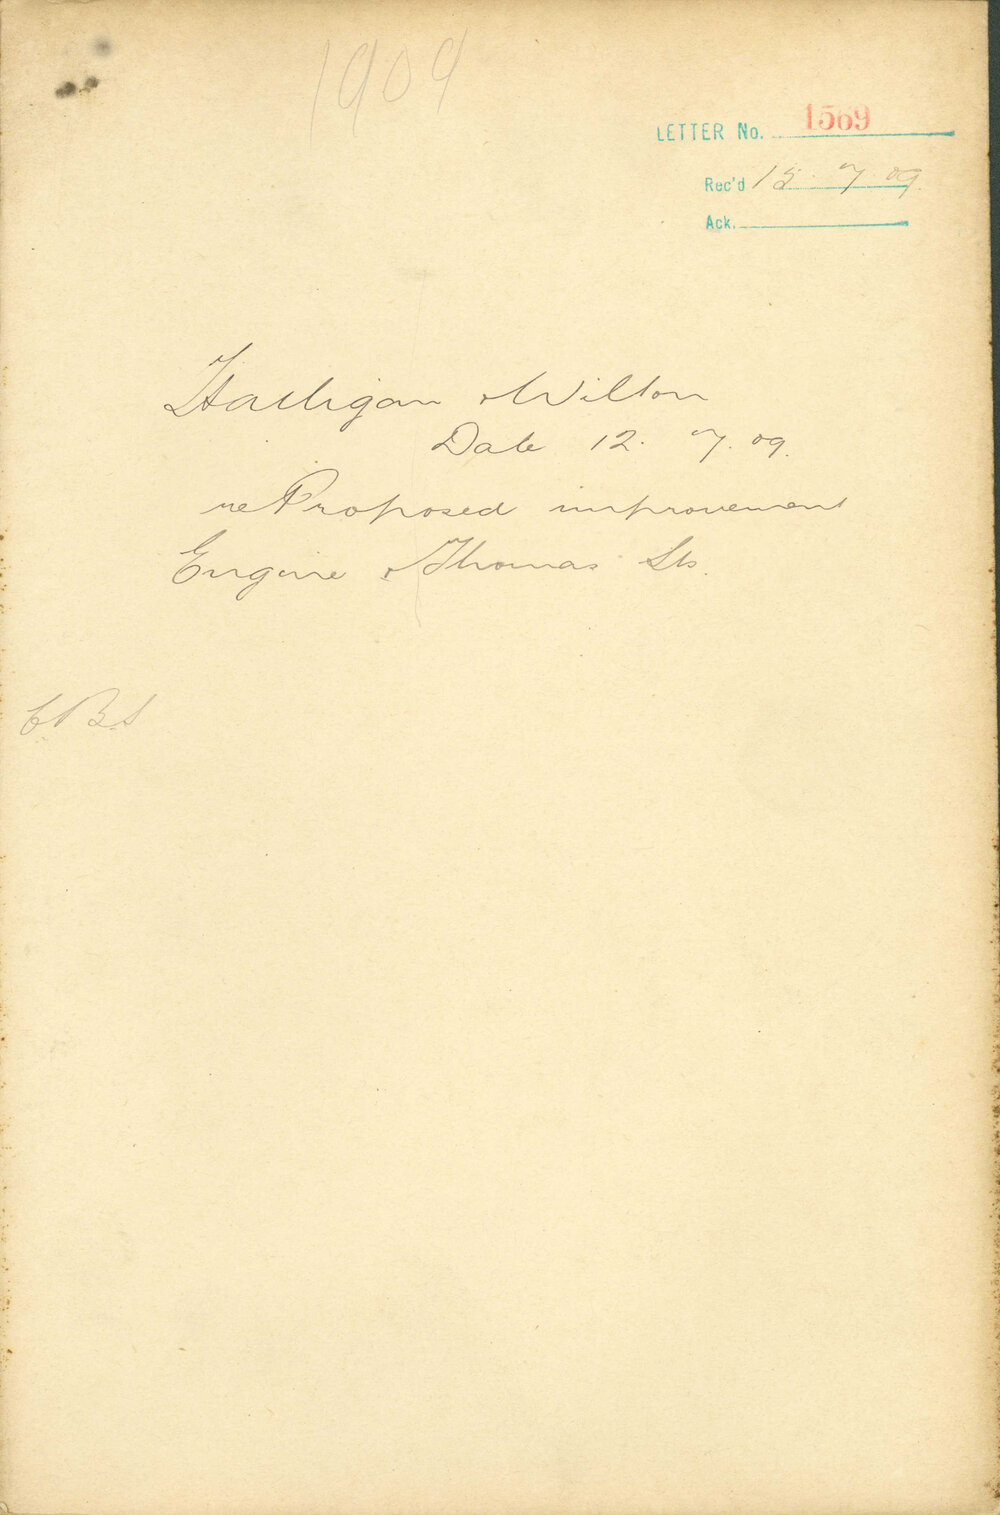 1909
LETTER No. 1569
Rec'd 15. 7 09.
Ack.
Halligan & Wilton
Date 12. 7. 09.
re Proposed improvement
Engine & Thomas Sts.
C.B.S